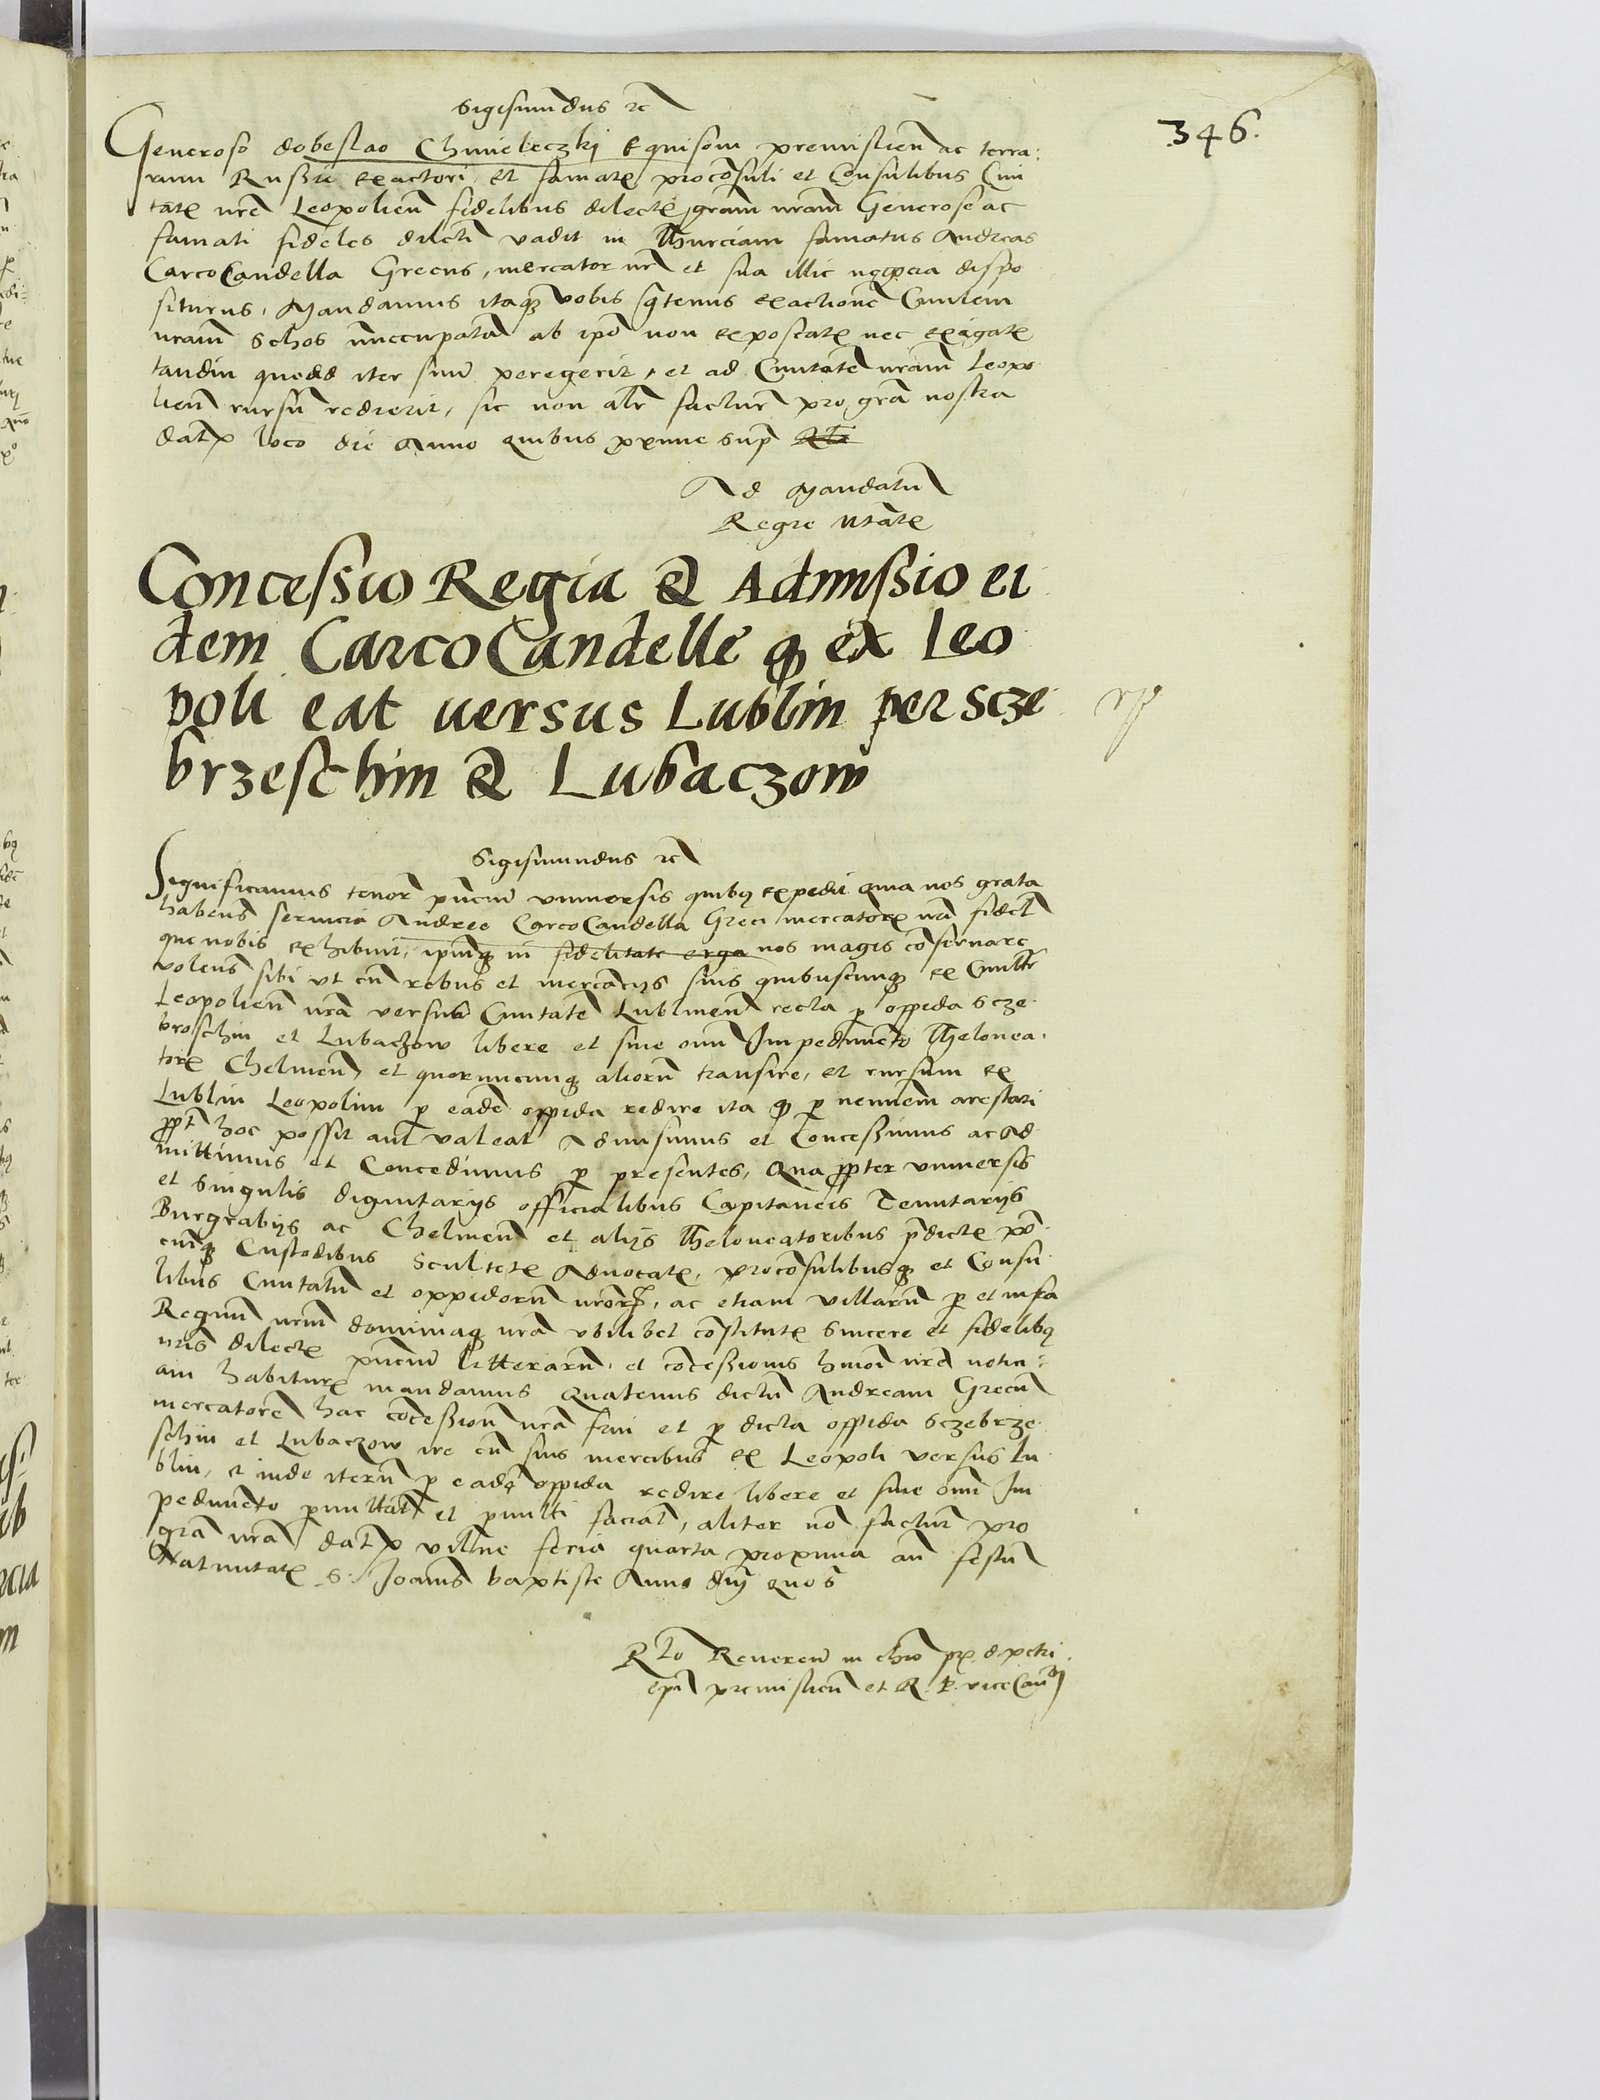 346.
Sigismundus zc
Generoso dobeslao Chmieleczkj Equisoni premislien ac terra:
rum Russie exactori, et famatis proconsuli et Consulibus Ciui
tatis nre Leopolien fidelibus dilectis, gram nram Generose ac
famati fideles dilecti vadit in Thurciam famatus Andreas
CarcoCandella Grecus, mercator nr et sua illic negocia dispo
siturus, Mandamus itaque vobis quatenus exactione Ciuilem
nram Schos nuccupatam ab ipo non exposcatis nec exigatis
tandiu quoad iter suum peregerit, et ad Ciuitatem nram Leopo
lien rursum redierit, sic non alr factur pro gra nostra
datum loco die Anno quibus proxime supra
Ad Mandatum
Regie Mtatis
Concessio Regia & Admissio ei
dem CarcoCandelle q ex Leo
poli eat uersus Lublin per Scze
brzeschin & Lubaczow
Sigismundus zc
Significamus tenore pntium vniuersis quibus expedit quia nos grata
habens seruicia Andree CarcoCandella Greci mercatoris nri fidel
que nobis exhibuit, ipumque in fidelitate erga nos magis conseruare
volens sibi vt cu rebus et mercancijs suis quibuscunque ex Ciuitate
Leopolien nra versus Ciuitatem Lublinen recta p oppida Scze
broschin et Lubaczow libere et sine omni Impedimento Thelonea
toris Chelmen et quorumcunque aliorum transire, et rursum ex
Lublin Leopolim p eade oppida redire ita q p neminem arestari
propter hoc possit aut valeat Admisimus et Concessimus ac Ad
mittimus et Concedimus p presentes, Qua propter vniuersis
et singulis dignitarijs officialibus Capitaneis Tenutarijs
Burgrabijs ac Chelmen et alijs Theloneatoribus pdictis
Custodibus Scultetis Aduocatis, proconsulibusque et Consu
libus Ciuitatum et oppidorum nrorum, ac etiam villarum p et infra
Regnum nrum dominiaque nra vbilibet constitutis sincere et fidelibus
nris dilectis pntium litterarum, et concessionis hmoi nre noticia:
am habituris mandamus Quatenus dictum Andream Grecum
mercatorem hac concessione nra frui et p dicta oppida Sczebrze
schin et Lubaczow ire cu suis mercibus ex Leopoli versus Lu
blin, et inde iterum p eade oppida redire libere et sine omni Im
pedimento pmittat et pmitti faciat, aliter no factur pro
gra nra datum vilne feria quarta proxima an festum
Natiuitatis S. Joannis baptiste Anno dnj quo s
Rlo Reueren in chro pris d petri
epi premislien et R. P. viceCan